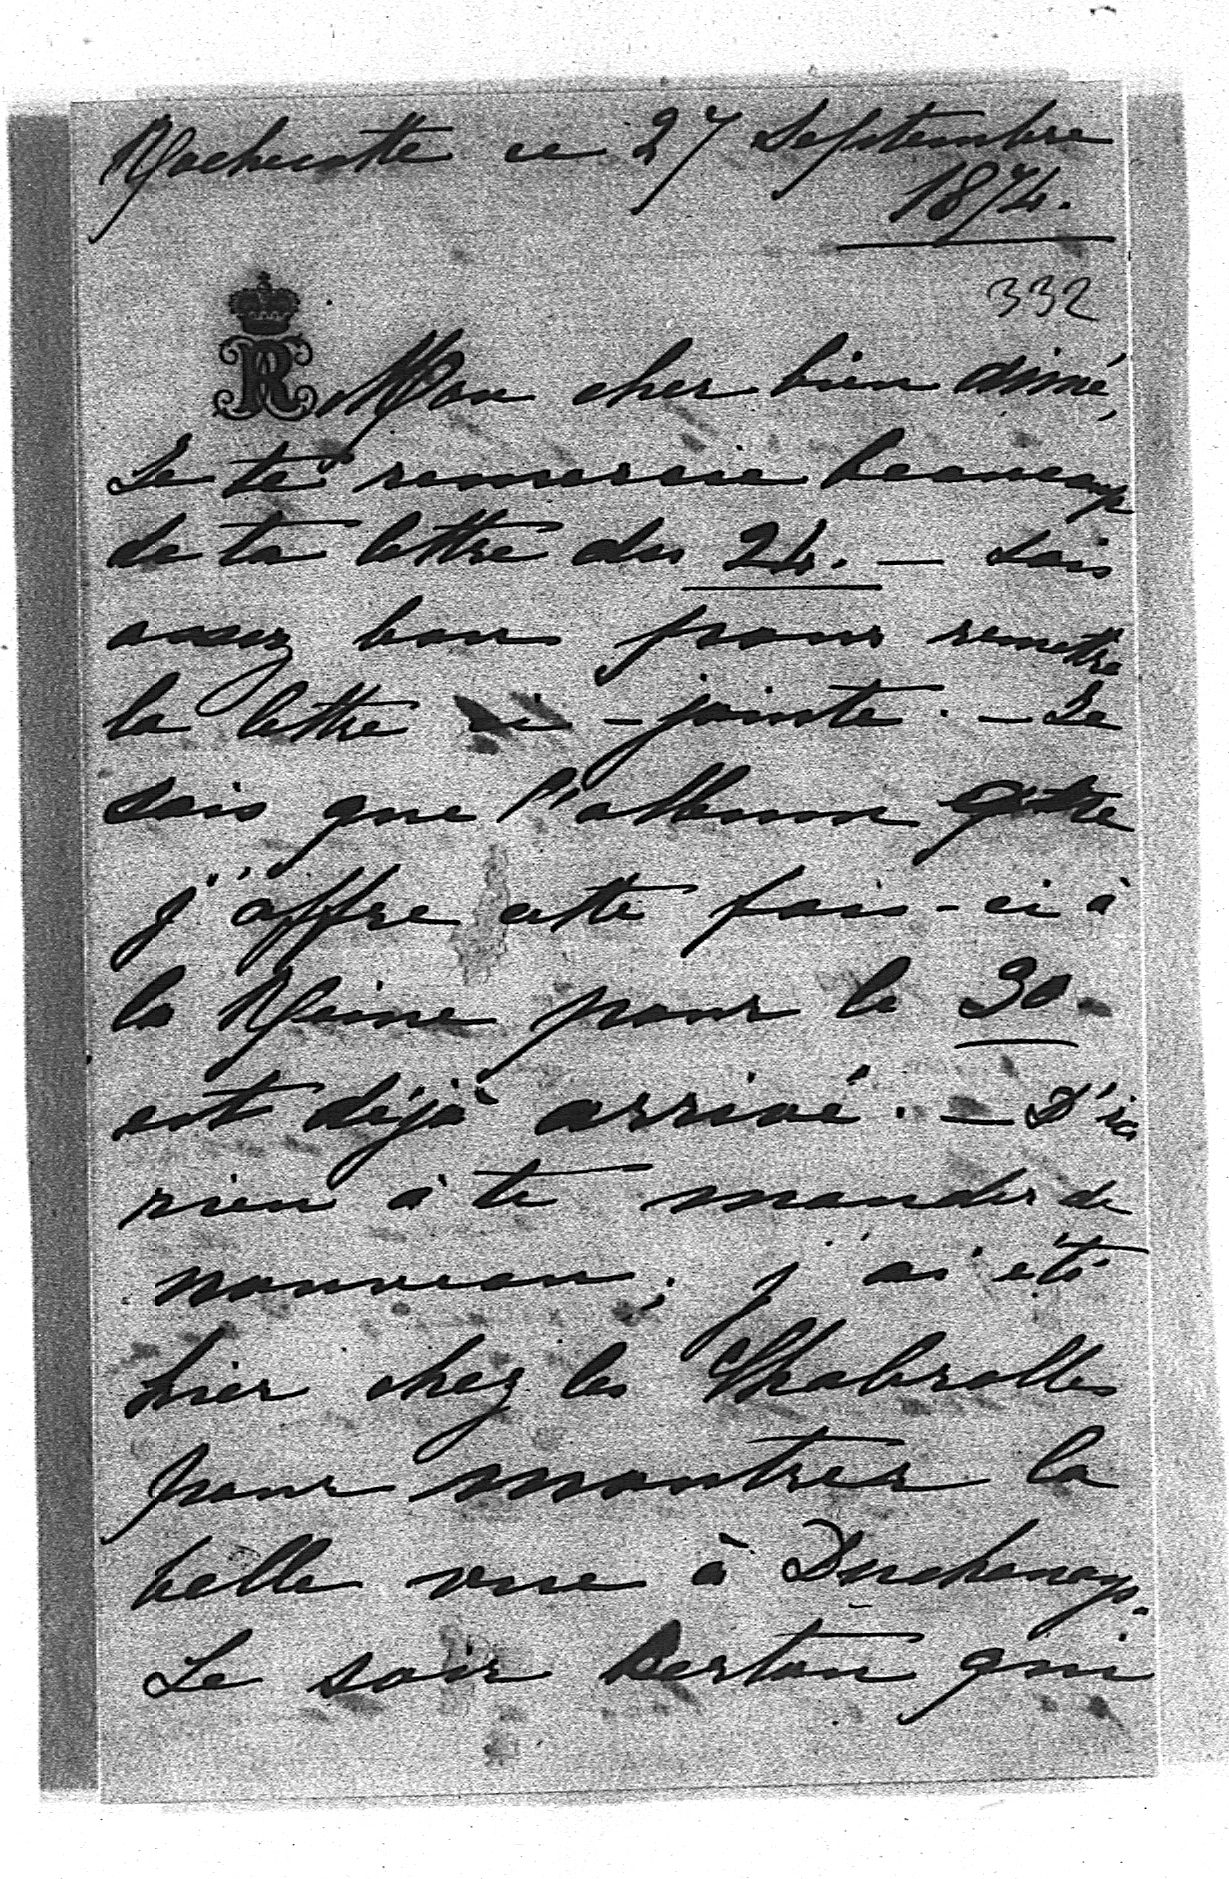 Rochecotte ce 27 Septembre
1874.
332
R
Mon cher bien aimé,
Je te remercie beaucoup
de ta lettre du 24. – Sois
assez bon pour remettre
la lettre ci-jointe. – Je
sais que l'album que
j'offre cette fois-ci à
la Reine pour le 30
est déjà arrivé. – D'ici
rien à te mander de
nouveau; j'ai été
hier chez les Chabrolles
pour montrer la
belle vue à
Le soir Berton qui